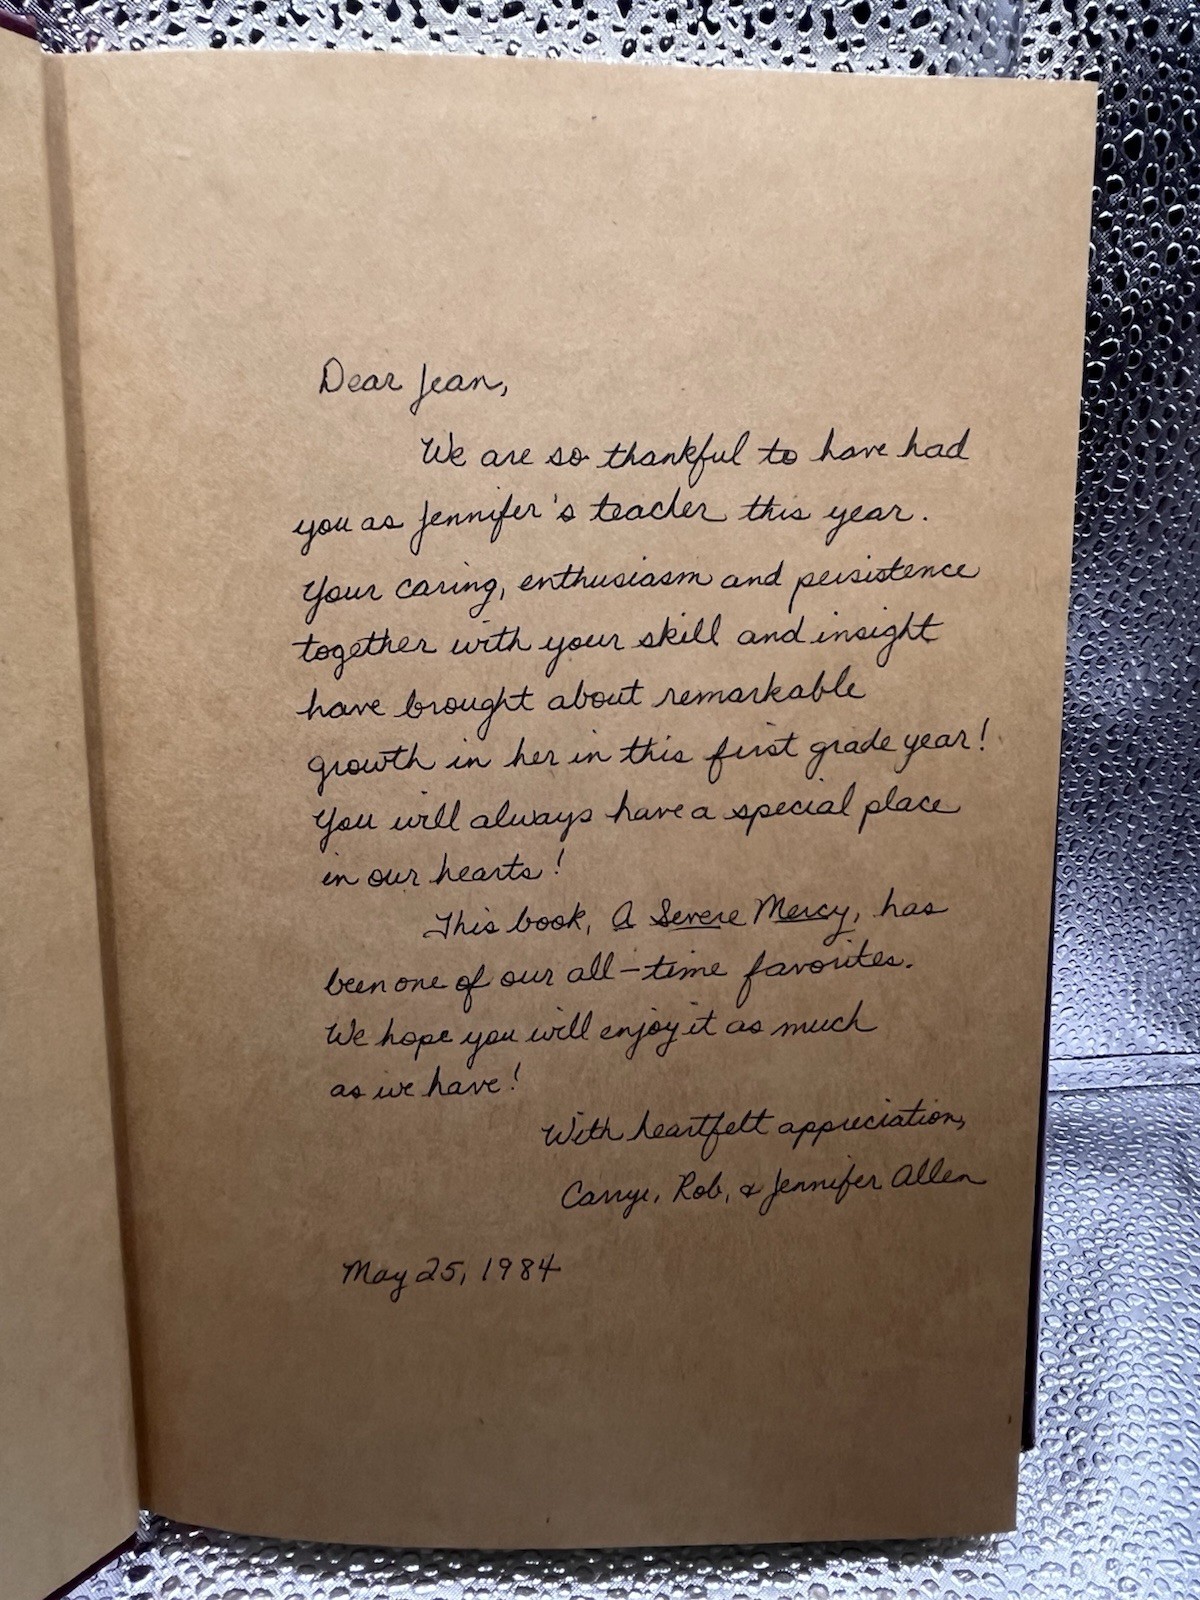 Dear Jean,
We are so thankful to have had
you as Jennifer's teacher this year.
Your caring, enthusiasm and persistence
together with your skill and insight
have brought about remarkable
growth in her in this first grade year!
You will always have a special place
in our hearts!
This book, A Severe Mercy, has
been one of our all-time favorites.
We hope you will enjoy it as much
as we have!
With heartfelt appreciation,
Rob, & Jennifer Allen
May 25, 1984